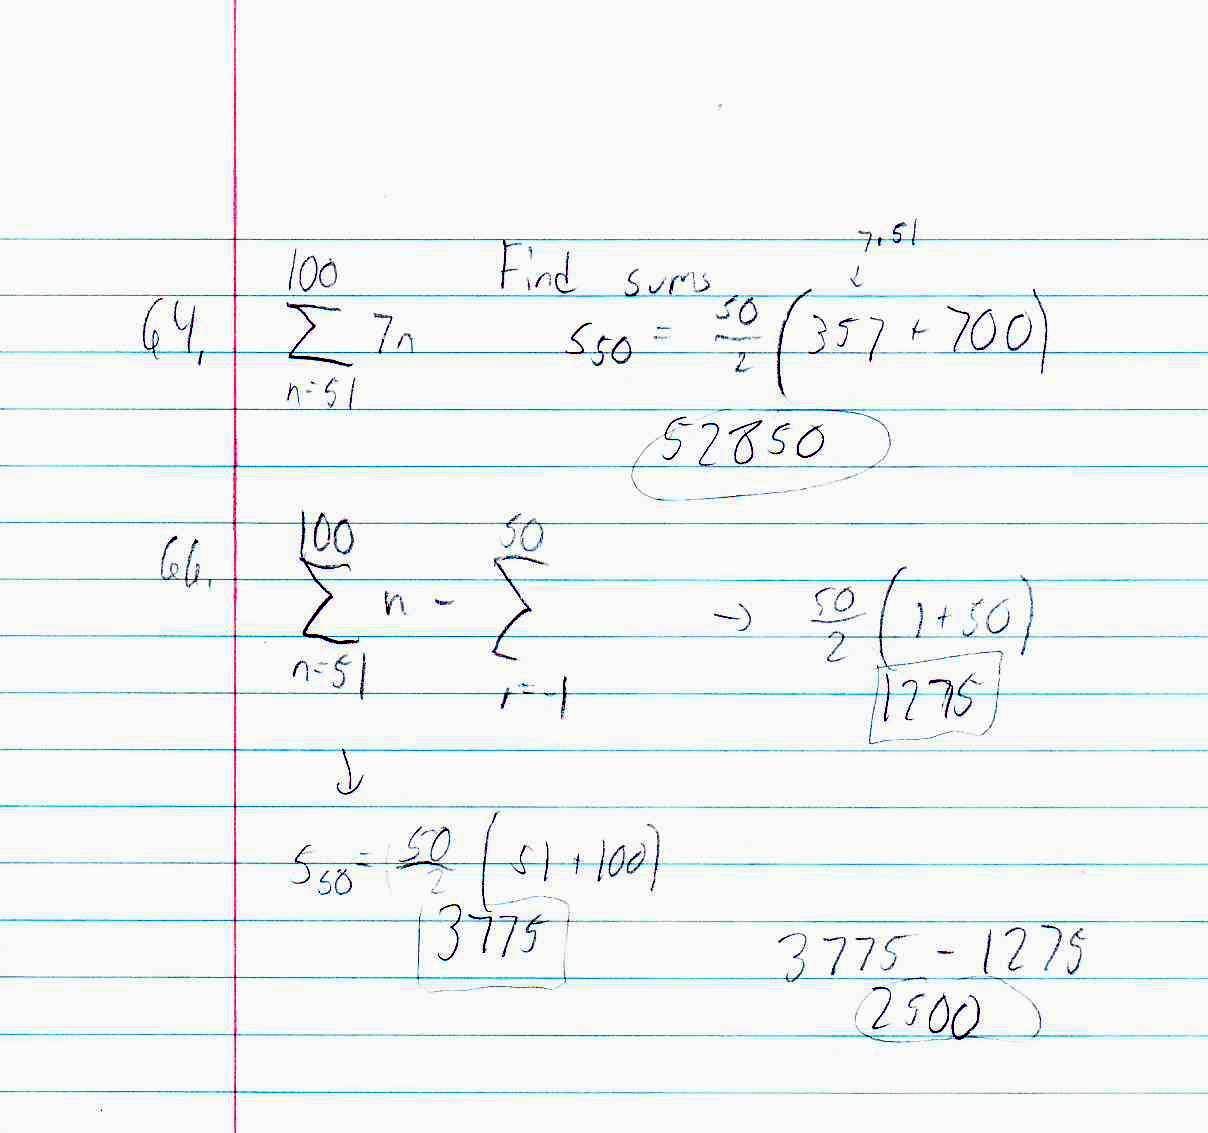 Find sums
64. 100 ∑ n=51 7n
7.51 ↓
S50 = 50/2 (357 + 700)
52850
66. 100 ∑ n=51 n - 50 ∑ =1 → 50/2 (1+50)
1275
↓
S50 = 50/2 (51+100)
3775
3775 - 1275
2500